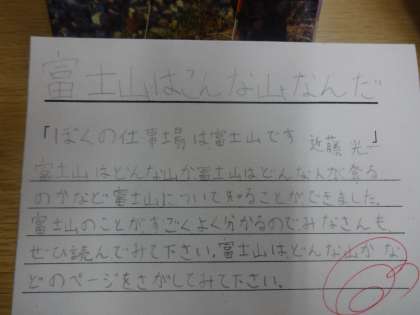 富士山はこんな山なんだ
「ぼくの仕事場は富士山です 近藤光一」
富士山はどんな山か富士山はどんな人が登る
のかなど富士山について知ることができました。
富士山のことがすごくよく分かるのでみなさんも、
ぜひ読んでみて下さい。富士山はどんな山かな
どのページをさがしてみて下さい。